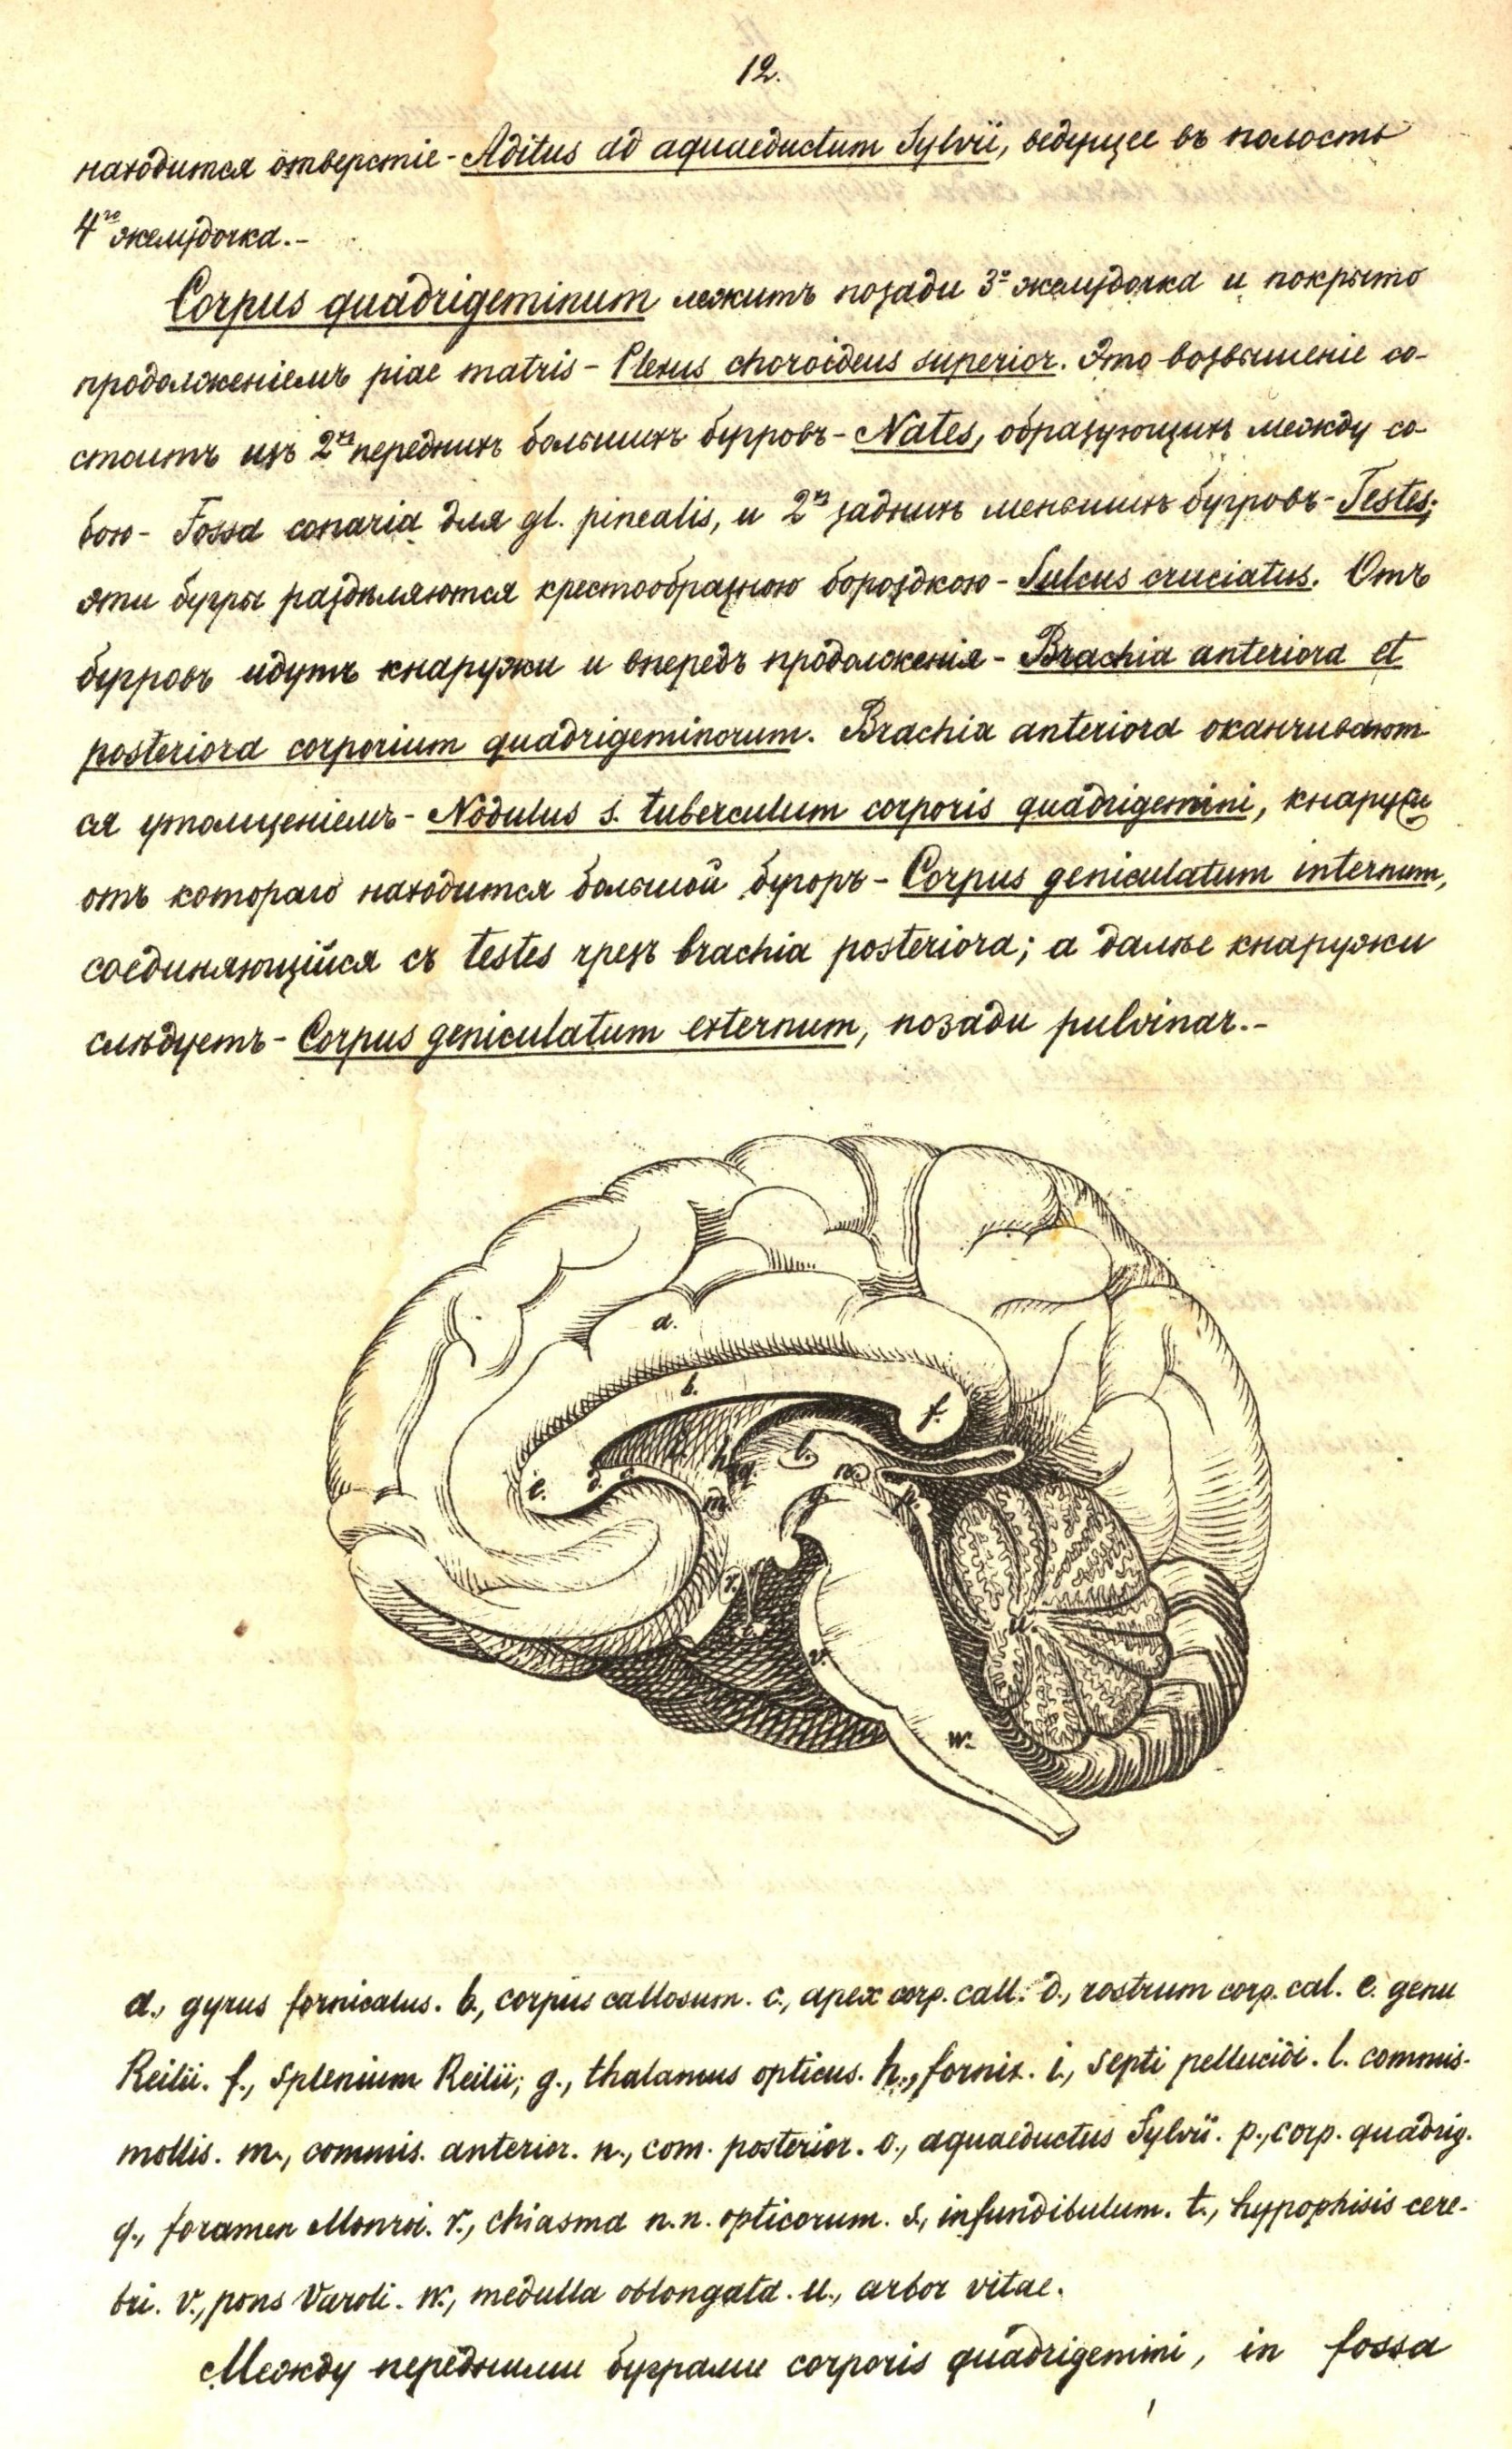 12.
находится отверстіе - Aditus ad aquaeductum Sylvii, ведущее въ полость
4го желудочка.-
Corpus quadrigeminum лежитъ позади 3го желудочка и покрыто
продолженіемъ piae matris - Plexus choroideus superior. Это возвышеніе со-
стоитъ изъ 2хъ переднихъ большихъ бугровъ - Nates, образующихъ между со-
бою - Fossa conaria для gl. pinealis, и 2хъ заднихъ меньшихъ бугровъ - Testes;
эти бугры раздѣляются крестообразною бороздкою - Sulcus cruciatus. Отъ
бугровъ идутъ кнаружи и впередъ продолженія - Brachia anteriora et
posteriora corporium quadrigeminorum. Brachia anteriora оканчивают-
ся утолщеніемъ - Nodulus s. tuberculum corporis quadrigemini, кнаружи
отъ котораго находится большой бугоръ - Corpus geniculatum internum,
соединяющійся съ testes чрезъ brachia posteriora; а далѣе кнаружи
слѣдуетъ - Corpus geniculatum externum, позади pulvinar.-
a.
b.
f.
h. l.
g. n.
e. d. c.
m. q. p.
r.
t. u.
v.
w.
a., gyrus fornicatus. b., corpus callosum. c., apex corp. call. d., rostrum corp. cal. e. genu
Reilii. f., splenium Reilii; g., thalamus opticus. h., fornix. i., septi pellucidi. l. commis.
mollis. m., commis. anterior. n., com. posterior. o., aquaeductus Sylvii. p., corp. quadrig.
q., foramen Monroi. r., chiasma n.n. opticorum. s., infundibulum. t., hypophisis cere-
bri. v., pons Varoli. w., medulla oblongata. u., arbor vitae.
Между передними буграми corporis quadrigemini, in fossa